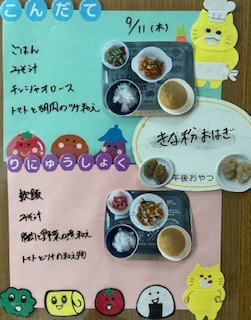 こんだて
9/11(木)
ごはん
みそ汁
チンジャオロース
トマトと胡瓜の酢和え
きな粉おはぎ
午後おやつ
りにゅうしょく
軟飯
みそ汁
豚肉と野菜の煮和え